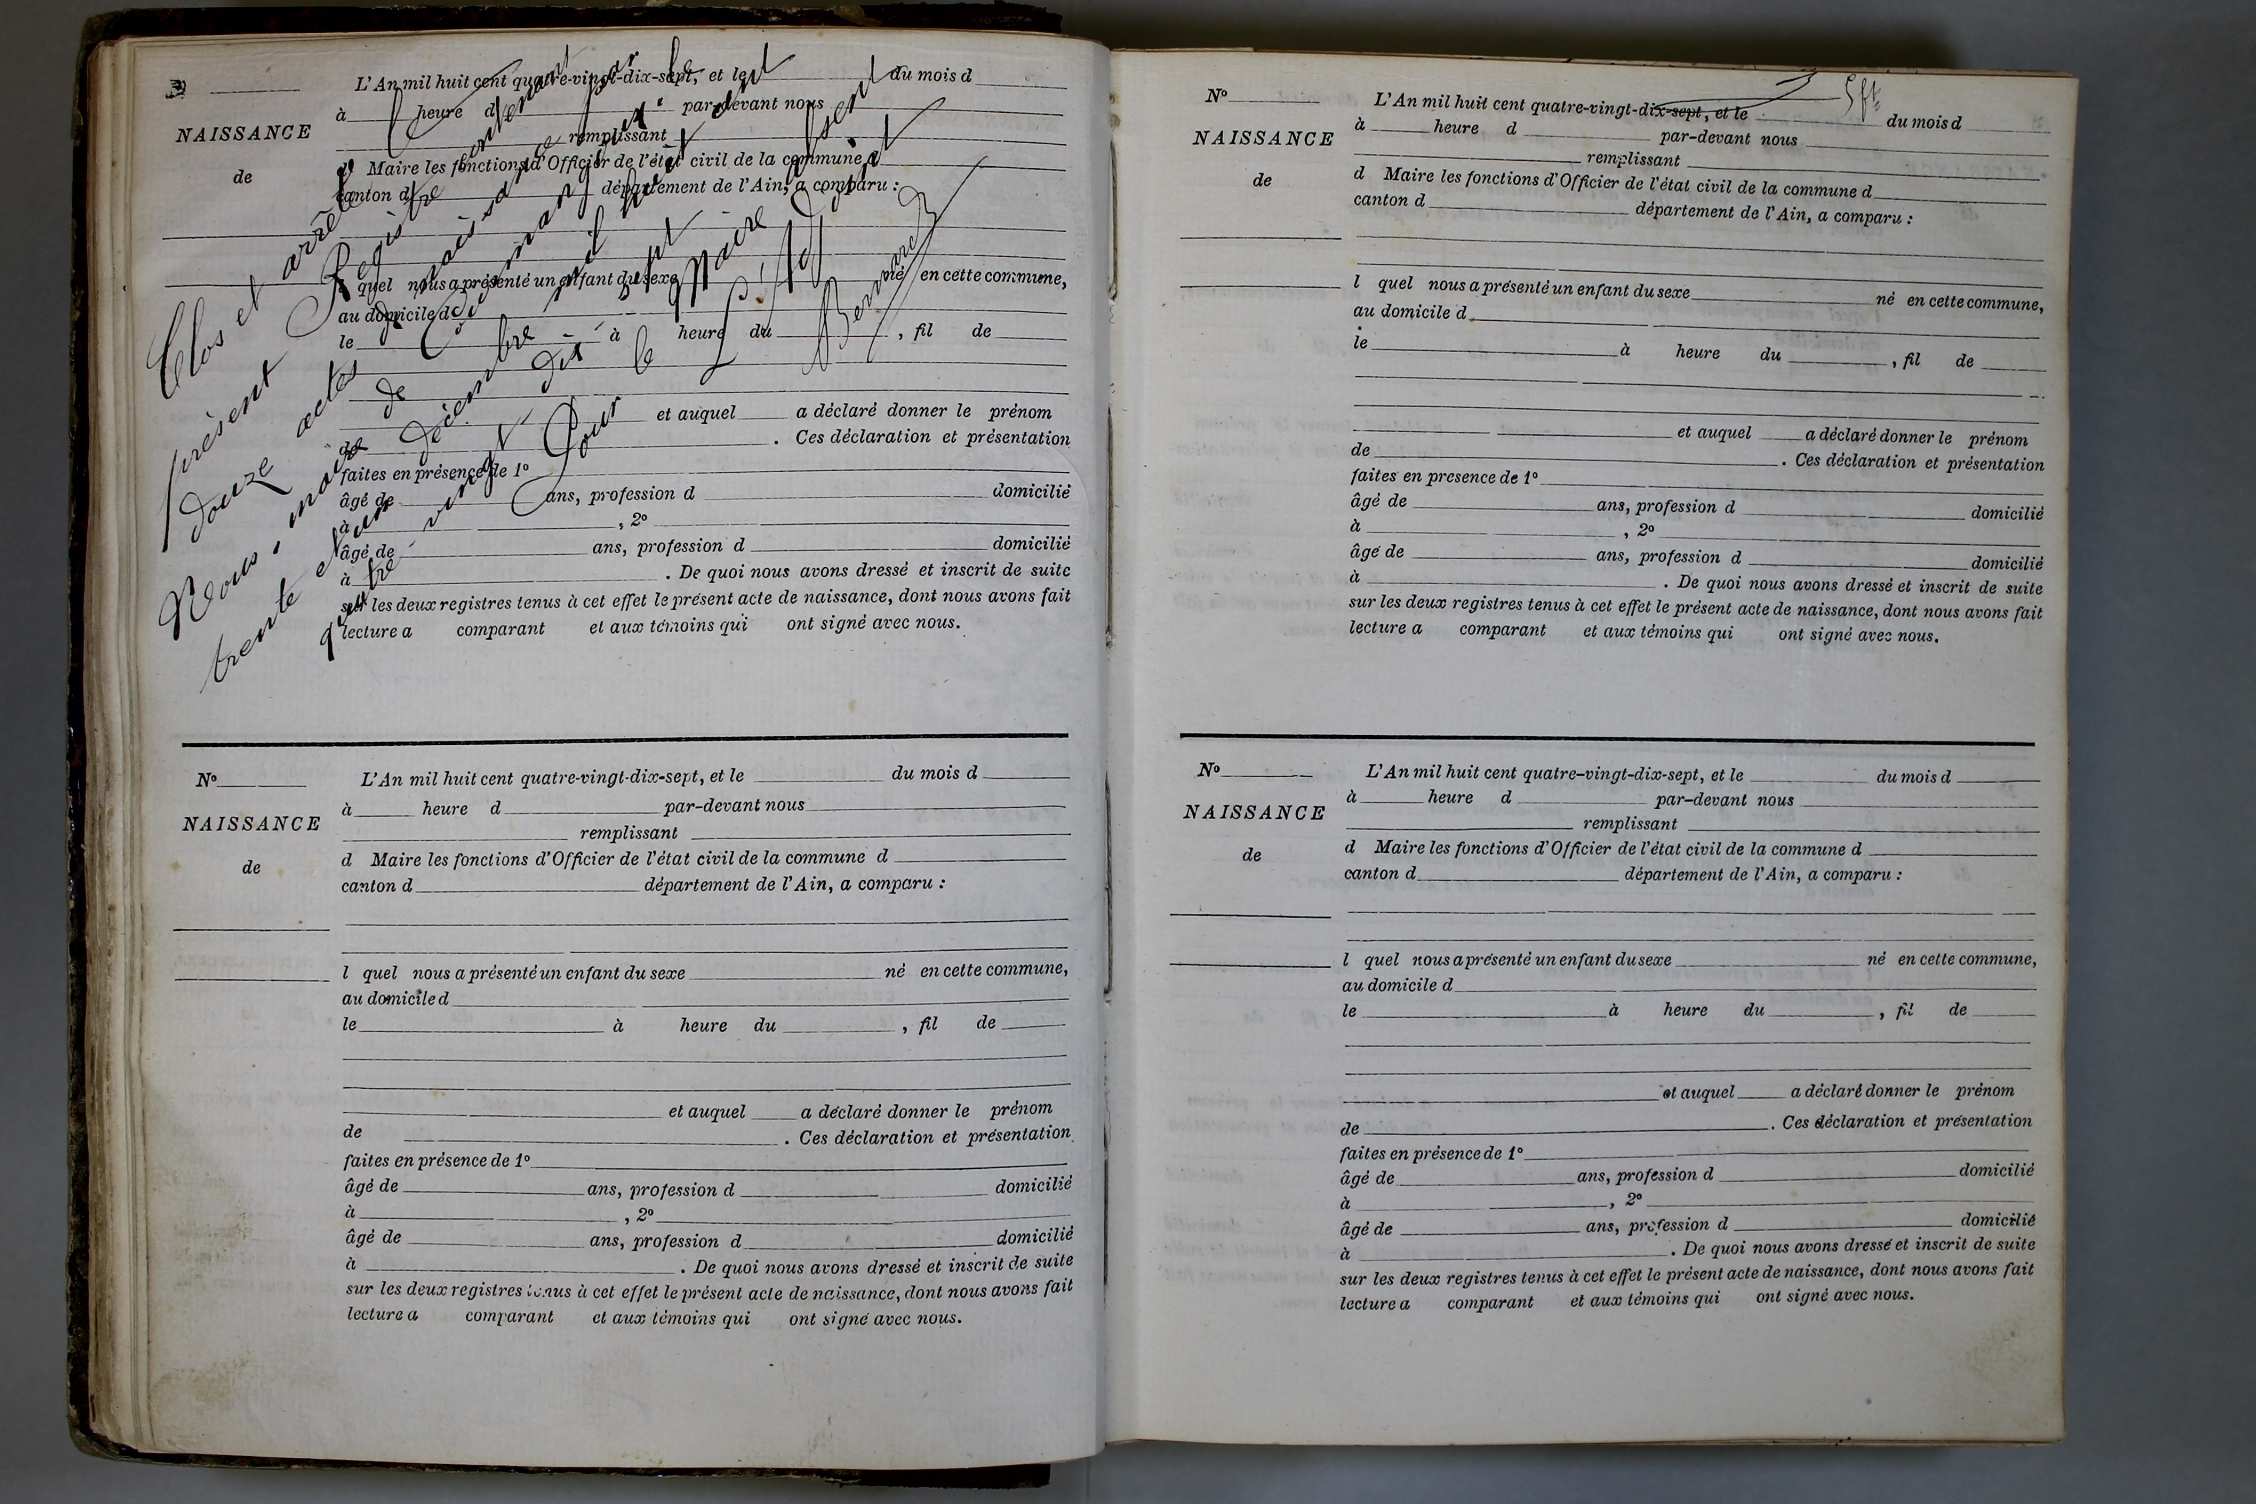 Clos et arrêté le
présent Registre contenant
douze actes de naissance par
Nous, maire de Dommartin le
trente et un décembre mil huit cent
quatre vingt dix sept
Pour le Maire absent
L'Adjoint
Bernard
L'An mil huit cent quatre-vingt-dix-sept, et le du mois d
à heure d par-devant nous
NAISSANCE
remplissant
d Maire les fonctions d'Officier de l'état civil de la commune d
de
canton d département de l'Ain, a comparu :
l quel nous a présenté un enfant du sexe né en cette commune,
au domicile d
le à heure du , fil de
et auquel a déclaré donner le prénom
de . Ces déclaration et présentation
faites en présence de 1º
âgé de ans, profession d domicilié
à , 2º
âgé de ans, profession d domicilié
à . De quoi nous avons dressé et inscrit de suite
sur les deux registres tenus à cet effet le présent acte de naissance, dont nous avons fait
lecture a comparant et aux témoins qui ont signé avec nous.
Nº L'An mil huit cent quatre-vingt-dix-sept, et le du mois d
à heure d par-devant nous
NAISSANCE
remplissant
d Maire les fonctions d'Officier de l'état civil de la commune d
de
canton d département de l'Ain, a comparu :
l quel nous a présenté un enfant du sexe né en cette commune,
au domicile d
le à heure du , fil de
et auquel a déclaré donner le prénom
de . Ces déclaration et présentation
faites en présence de 1º
âgé de ans, profession d domicilié
à , 2º
âgé de ans, profession d domicilié
à . De quoi nous avons dressé et inscrit de suite
sur les deux registres tenus à cet effet le présent acte de naissance, dont nous avons fait
lecture a comparant et aux témoins qui ont signé avec nous.
Nº L'An mil huit cent quatre-vingt-dix-sept, et le du mois d
à heure d par-devant nous
NAISSANCE
remplissant
d Maire les fonctions d'Officier de l'état civil de la commune d
de
canton d département de l'Ain, a comparu :
l quel nous a présenté un enfant du sexe né en cette commune,
au domicile d
le à heure du , fil de
et auquel a déclaré donner le prénom
de . Ces déclaration et présentation
faites en presence de 1º
âgé de ans, profession d domicilié
à , 2º
âgé de ans, profession d domicilié
à . De quoi nous avons dressé et inscrit de suite
sur les deux registres tenus à cet effet le présent acte de naissance, dont nous avons fait
lecture a comparant et aux témoins qui ont signé avec nous.
Nº L'An mil huit cent quatre-vingt-dix-sept, et le du mois d
à heure d par-devant nous
NAISSANCE
remplissant
d Maire les fonctions d'Officier de l'état civil de la commune d
de
canton d département de l'Ain, a comparu :
l quel nous a présenté un enfant du sexe né en cette commune,
au domicile d
le à heure du , fil de
et auquel a déclaré donner le prénom
de . Ces déclaration et présentation
faites en présence de 1º
âgé de ans, profession d domicilié
à , 2º
âgé de ans, profession d domicilié
à . De quoi nous avons dressé et inscrit de suite
sur les deux registres tenus à cet effet le présent acte de naissance, dont nous avons fait
lecture a comparant et aux témoins qui ont signé avec nous.